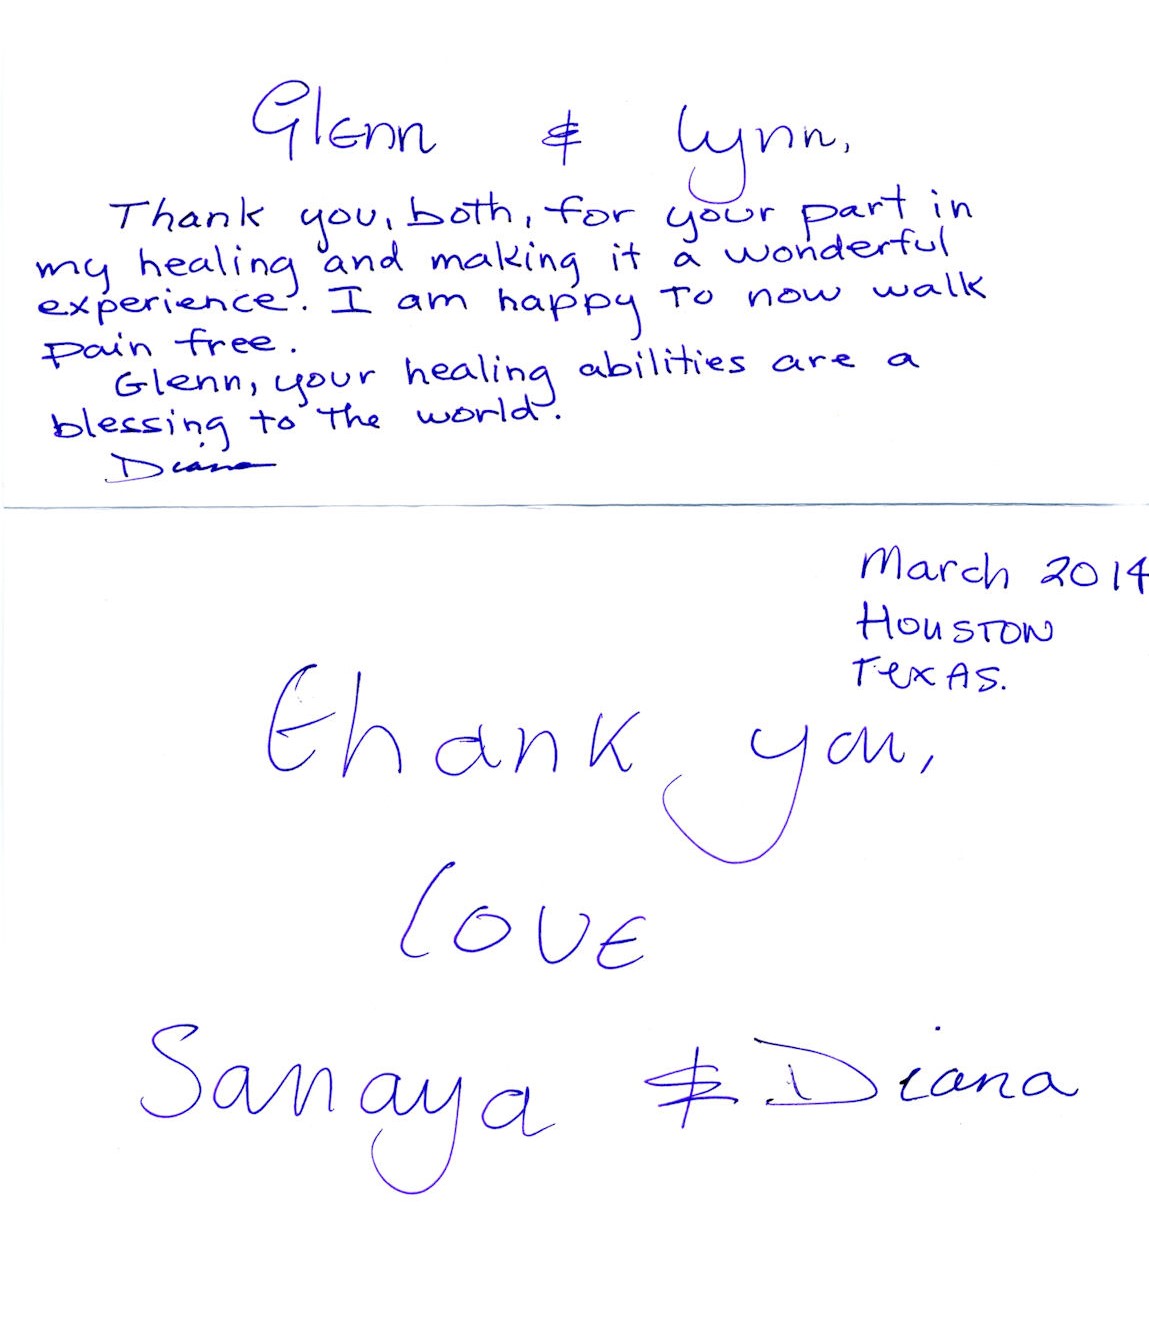 Glenn & Lynn,
Thank you, both, for your part in
my healing and making it a wonderful
experience. I am happy to now walk
pain free.
Glenn, your healing abilities are a
blessing to the world.
Diana
March 2014
Houston
Texas.
Thank you,
Love
Sanaya & Diana